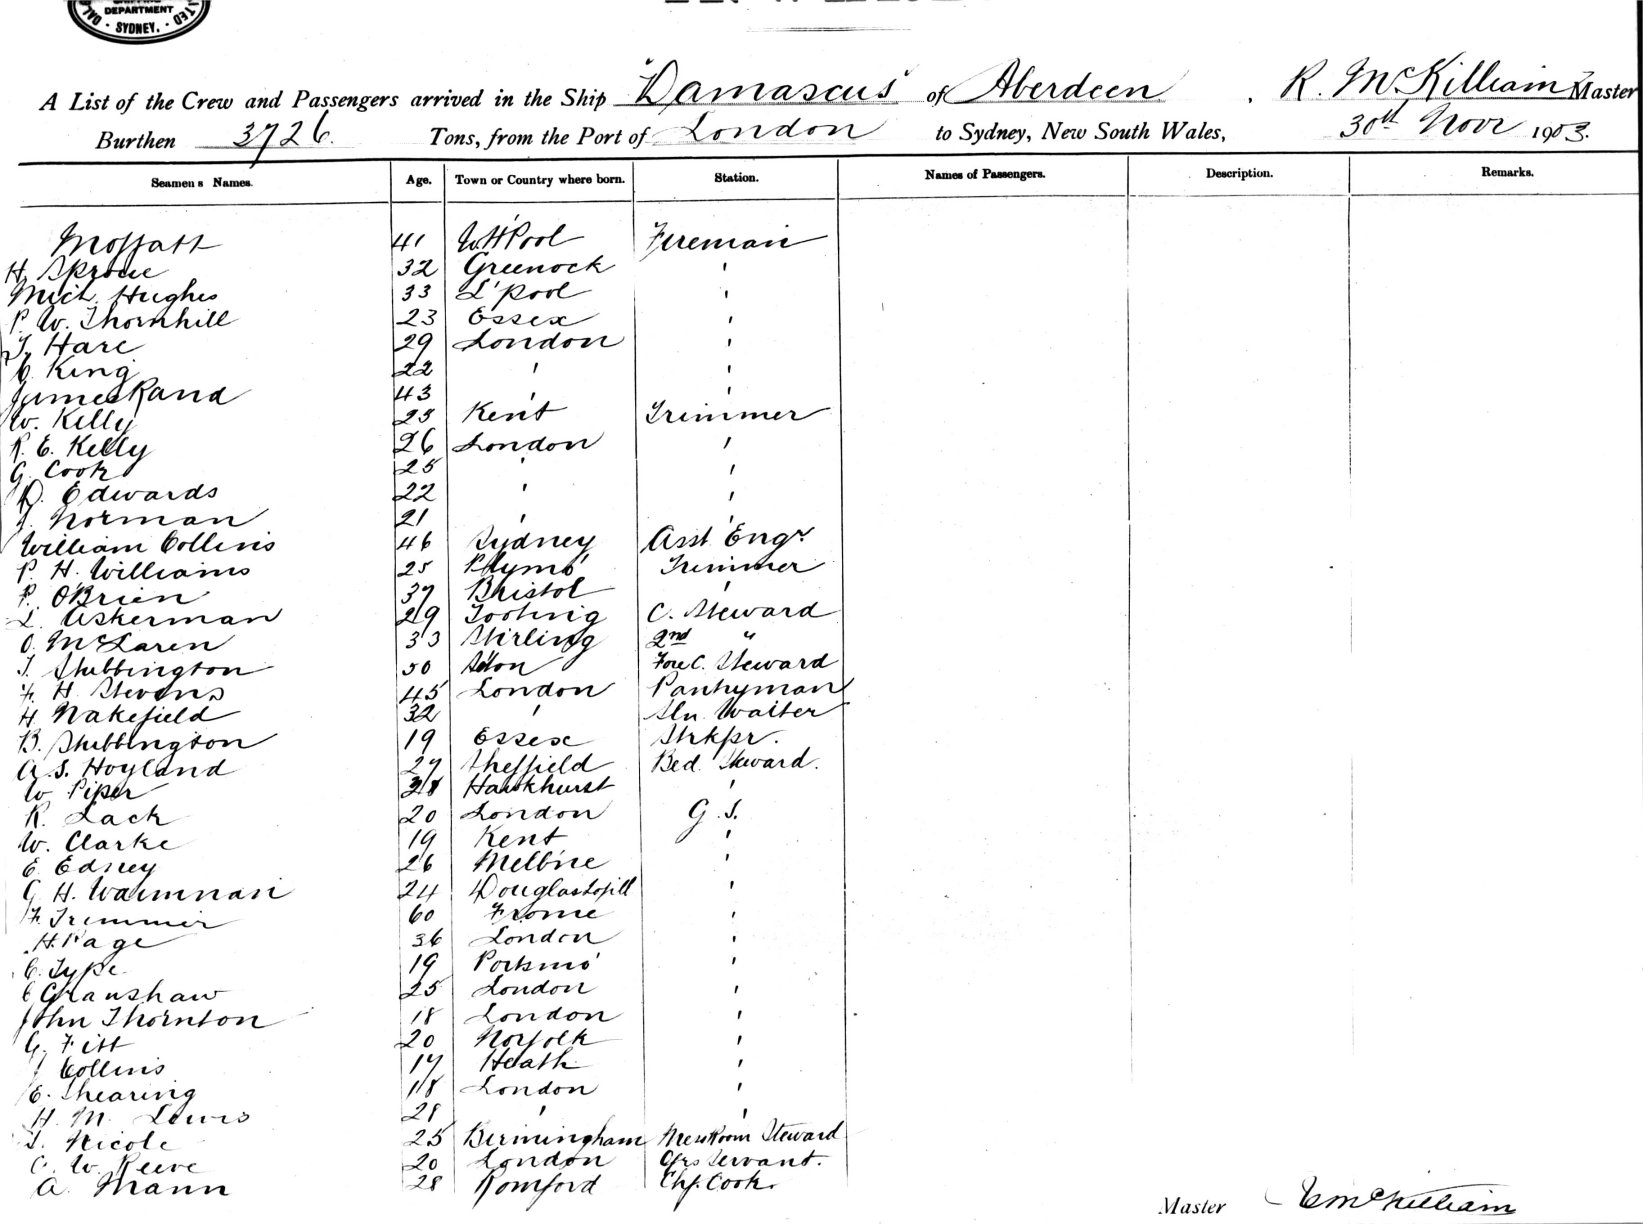 DEPARTMENT
SYDNEY.
A List of the Crew and Passengers arrived in the Ship "Damascus" of Aberdeen, R. McKilliam Master
Burthen 3726. Tons, from the Port of London to Sydney, New South Wales, 30th Novr 1903.
Seamens Names. Age. Town or Country where born. Station. Names of Passengers. Description. Remarks.
Moffatt 41 W H'Pool Fireman
H. Sproue 32 Greenock '
Mich. Hughes 33 L'pool '
P. W. Thornhill 23 Essex '
T. Hare 29 London '
C. King 22 ' '
James Rand 43 ' '
W. Kelly 25 Kent Trimmer
R. E. Kelly 26 London '
G. Cook 25 ' '
D. Edwards 22 ' '
J. Norman 21 ' '
William Collins 46 Sydney Asst Engr
P. H. Williams 25 Plymo' Trimmer
P. O'Brien 37 Bristol '
L. Askerman 29 Tooting C. Steward
O. McLaren 33 Stirling 2nd "
T. Stubbington 50 Fore C. Steward
F. H. Stevens 45 London Pantryman
H. Wakefield 32 ' Sln. Waiter
B. Stubbington 19 Essex Strkpr.
A. S. Hoyland 27 Sheffield Bed. Steward.
W Piper 28 Hawkhurst '
R. Lack 20 London G. S.
W. Clarke 19 Kent '
E. Edney 26 Melb'ne '
G. H. Wainman 24 Douglas '
F. Trimmer 60 Frome '
H. Page 36 London '
C. Type 19 Portsmo' '
C Cranshaw 25 London '
John Thornton 18 London '
G. Fitt 20 Norfolk '
J Collins 17 Heath '
E. Shearing 18 London '
H. M. Lewis 28 ' '
T. Nicole 25 Birmingham Mess Room Steward
C. W. Reeve 20 London Ofrs Servant.
A. Mann 28 Romford Chf. Cook.
Master McKilliam